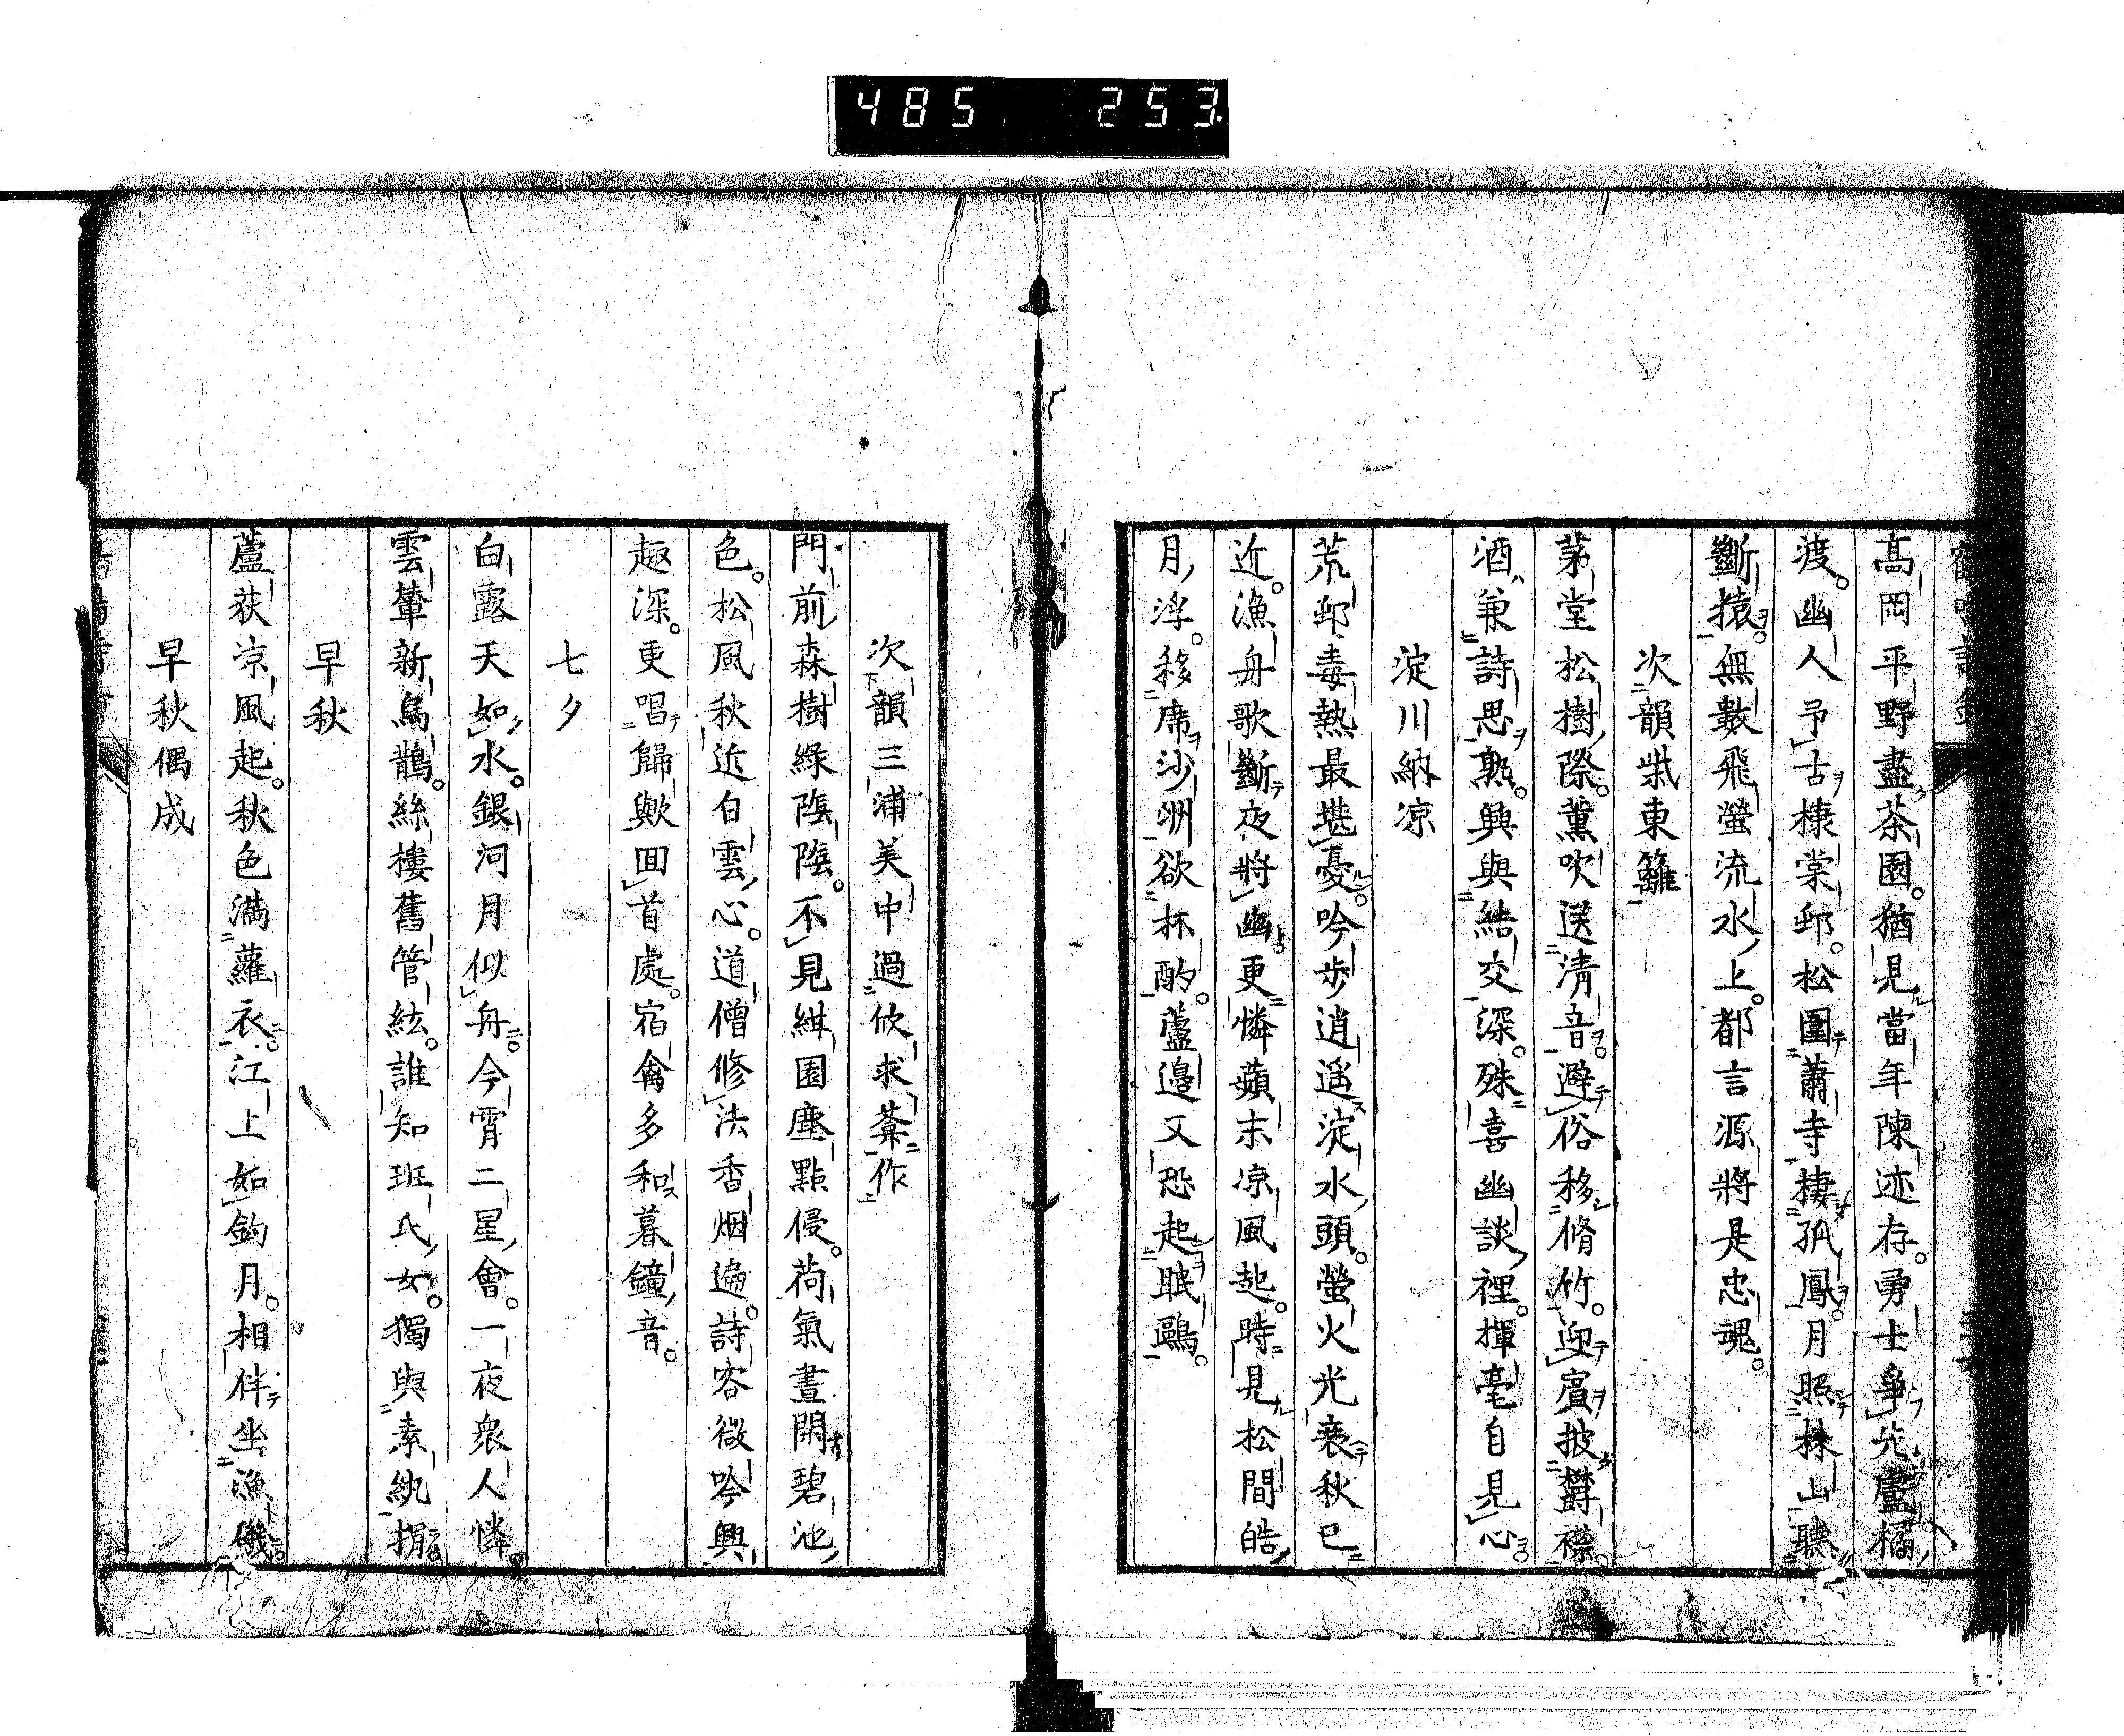 485 253
高岡平野盡茶園。猶見當年陳迹存。勇士爭先盧橘
渡。幽人弔古棣棠邨。松圍蕭寺棲孤鳳。月照林山聽
斷猿。無數飛螢流水上。都言源將是忠魂。
次韻柴東籬
茅堂松樹際。薰吹送清音。避俗移脩竹。迎賓披欝襟。
酒兼詩思熟。興與結交深。殊喜幽談裡。揮毫自見心
淀川納凉
荒邨毒熱最堪憂。吟步逍遥淀水頭。螢火光衰秋已
近。漁舟歌斷夜將幽。更憐蘋末凉風起。時見松間皓
月浮。移席沙洲欲杯酌。蘆邉又恐起眠鷗。
次韻三浦美中過攸求菴作
門前森樹綠陰陰。不見紺園塵點侵。荷氣晝閑碧池
色。松風秋近白雲心。道僧修法香烟遍。詩客微吟興
趣深。更唱歸歟回首處。宿禽多和暮鐘音。
七夕
白露天如水。銀河月似舟。今宵二星會。一夜衆人憐
雲輦新烏鵲。絲樓舊管絃。誰知班氏女。獨與素紈捐
早秋
蘆荻凉風起。秋色滿蘿衣。江上如鉤月。相伴坐漁磯
早秋偶成